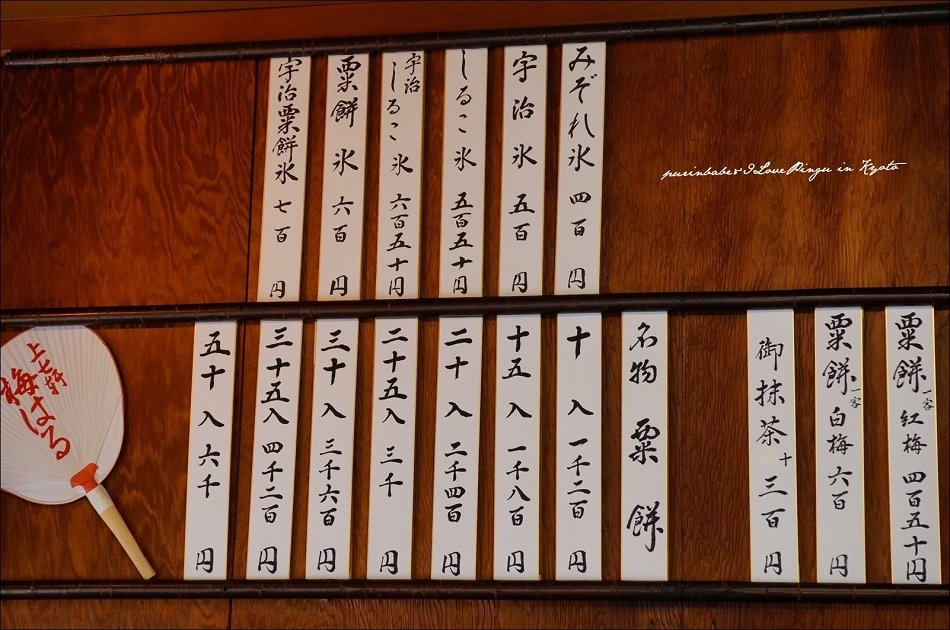 みぞれ氷 四百円
宇治氷 五百円
しるこ氷 五百五十円
宇治しるこ氷 六百五十円
粟餅氷 六百円
宇治粟餅氷 七百円
purinbaber I Love Pingu in Kyoto
粟餅 一客 紅梅 四百五十円
粟餅 一客 白梅 六百円
御抹茶 十三百円
名物 粟餅
十入 一千二百円
十五入 一千八百円
二十入 二千四百円
二十五入 三千円
三十入 三千六百円
三十五入 四千二百円
五十入 六千円
上七軒
梅はる